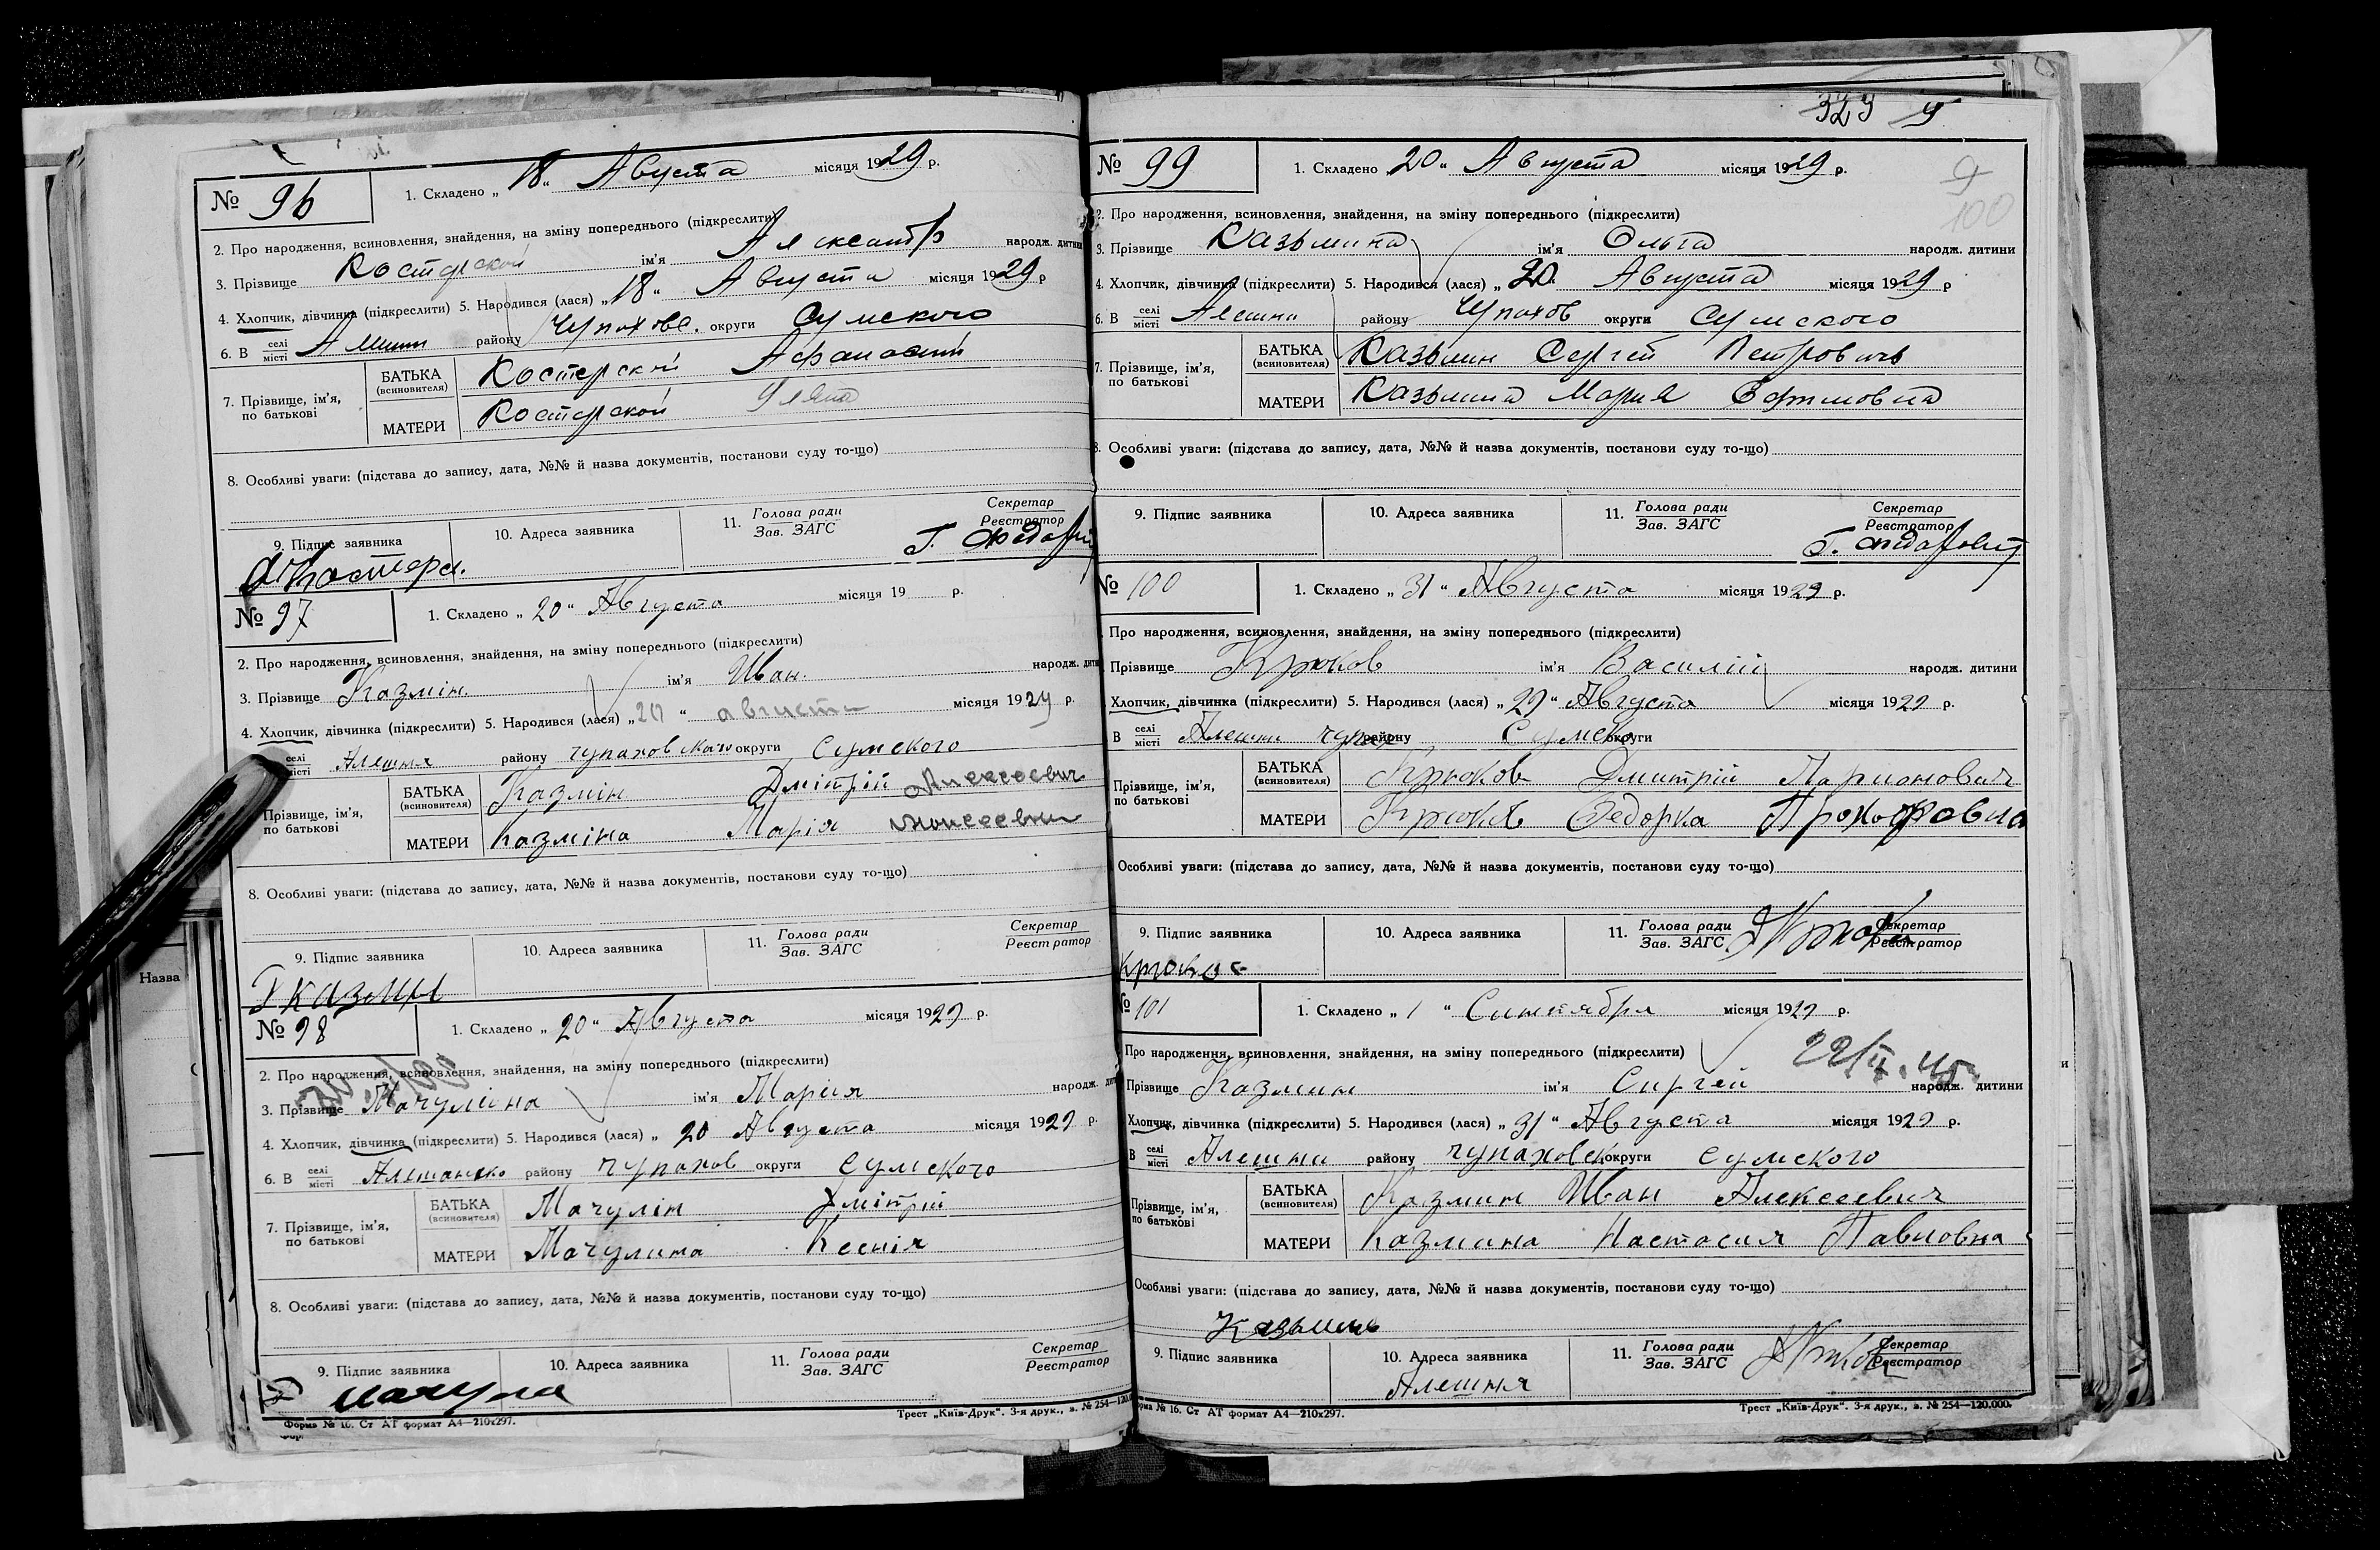 № 96
1. Складено „ 18 “ Августа місяця 1929 р.
2. Про народження, всиновлення, знайдення, на зміну попереднього (підкреслити)
3. Прізвище Костерской ім'я Александр народж. дитини
4. Хлопчик, дівчинка (підкреслити) 5. Народився (лася) „ 18 “ Августа місяця 1929 р
6. В селі місті району Чупахов. округи Сумского
7. Прізвище, ім'я, по батькові
БАТЬКА (всиновителя) Костерской Афанасий
МАТЕРИ Костерской Уляна
8. Особливі уваги: (підстава до запису, дата, №№ й назва документів, постанови суду то-що)
9. Підпис заявника 10. Адреса заявника 11. Голова ради Зав. ЗАГС Секретар Реєстратор
№ 97
1. Складено „ 20 “ Августа місяця 19 р.
2. Про народження, всиновлення, знайдення, на зміну попереднього (підкреслити)
3. Прізвище Казмін. ім'я Иван. народж. дити
4. Хлопчик, дівчинка (підкреслити) 5. Народився (лася) „ 20 “ августа місяця 1929 р.
селі місті Алешня району чупаховского округи Сумского
Прізвище, ім'я, по батькові
БАТЬКА (всиновителя) Казмін Дмітрій Алексеевич
МАТЕРИ Казміна Марія Моисеевна
8. Особливі уваги: (підстава до запису, дата, №№ й назва документів, постанови суду то-що)
9. Підпис заявника 10. Адреса заявника 11. Голова ради Зав. ЗАГС Секретар Реєстратор
№ 98
1. Складено „ 20 “ Августа місяця 1929 р.
2. Про народження, всиновлення, знайдення, на зміну попереднього (підкреслити)
3. Прізвище Мачуліна ім'я Марія народж. дити
4. Хлопчик, дівчинка (підкреслити) 5. Народився (лася) „ 20 Августа місяця 1929 р.
6. В селі місті району чупахов округи Сумского
7. Прізвище, ім'я, по батькові
БАТЬКА (всиновителя) Мачулін Дмітрій
МАТЕРИ Мачулина Ксенія
8. Особливі уваги: (підстава до запису, дата, №№ й назва документів, постанови суду то-що)
9. Підпис заявника 10. Адреса заявника 11. Голова ради Зав. ЗАГС Секретар Реєстратор
Форма № 16. Ст АТ формат А4—210x297. Трест „Київ-Друк“. 3-я друк., з. № 254—120.0
Назва
329
9
100
№ 99
1. Складено 20 “ Августа місяця 1929 р.
2. Про народження, всиновлення, знайдення, на зміну попереднього (підкреслити)
3. Прізвище Казьмина ім'я Ольга народж. дитини
4. Хлопчик, дівчинка (підкреслити) 5. Народився (лася) „ 20 Августа місяця 1929 р
6. В селі місті Алешни району Чупахов округи Сумского
7. Прізвище, ім'я, по батькові
БАТЬКА (всиновителя) Казьмин Сергей Петровичь
МАТЕРИ Казьмина Мария Ефимовна
8. Особливі уваги: (підстава до запису, дата, №№ й назва документів, постанови суду то-що)
9. Підпис заявника 10. Адреса заявника 11. Голова ради Зав. ЗАГС Секретар Реєстратор
№ 100
1. Складено „ 31 “ Августа місяця 1929 р.
Про народження, всиновлення, знайдення, на зміну попереднього (підкреслити)
Прізвище Крюков ім'я Василій народж. дитини
Хлопчик, дівчинка (підкреслити) 5. Народився (лася) „ 29 “ Августа місяця 1929 р.
В селі місті Алешни чупах району Сумско округи
Прізвище, ім'я, по батькові
БАТЬКА (всиновителя) Крюков Дмитрій Ларионович
МАТЕРИ Крюков Федорка Прокофовна
Особливі уваги: (підстава до запису, дата, №№ й назва документів, постанови суду то-що)
9. Підпис заявника 10. Адреса заявника 11. Голова ради Зав. ЗАГС Секретар Реєстратор
Крюков
№ 101
1. Складено „ 1 “ Синтября місяця 1929 р.
Про народження, всиновлення, знайдення, на зміну попереднього (підкреслити)
Прізвище Казмин ім'я Сиргей народж. дитини
Хлопчик, дівчинка (підкреслити) 5. Народився (лася) „ 31 “ Августа місяця 1929 р.
В селі місті Алешни району чупаховск округи Сумского
Прізвище, ім'я, по батькові
БАТЬКА (всиновителя) Казмин Иван Алексеевич
МАТЕРИ Казмина Настасия Павловна
Особливі уваги: (підстава до запису, дата, №№ й назва документів, постанови суду то-що)
Казьмин
9. Підпис заявника 10. Адреса заявника 11. Голова ради Зав. ЗАГС Секретар Реєстратор
Алешня
рма № 16. Ст АТ формат А4—210x297. Трест „Київ-Друк“. 3-я друк., з. № 254—120.000.